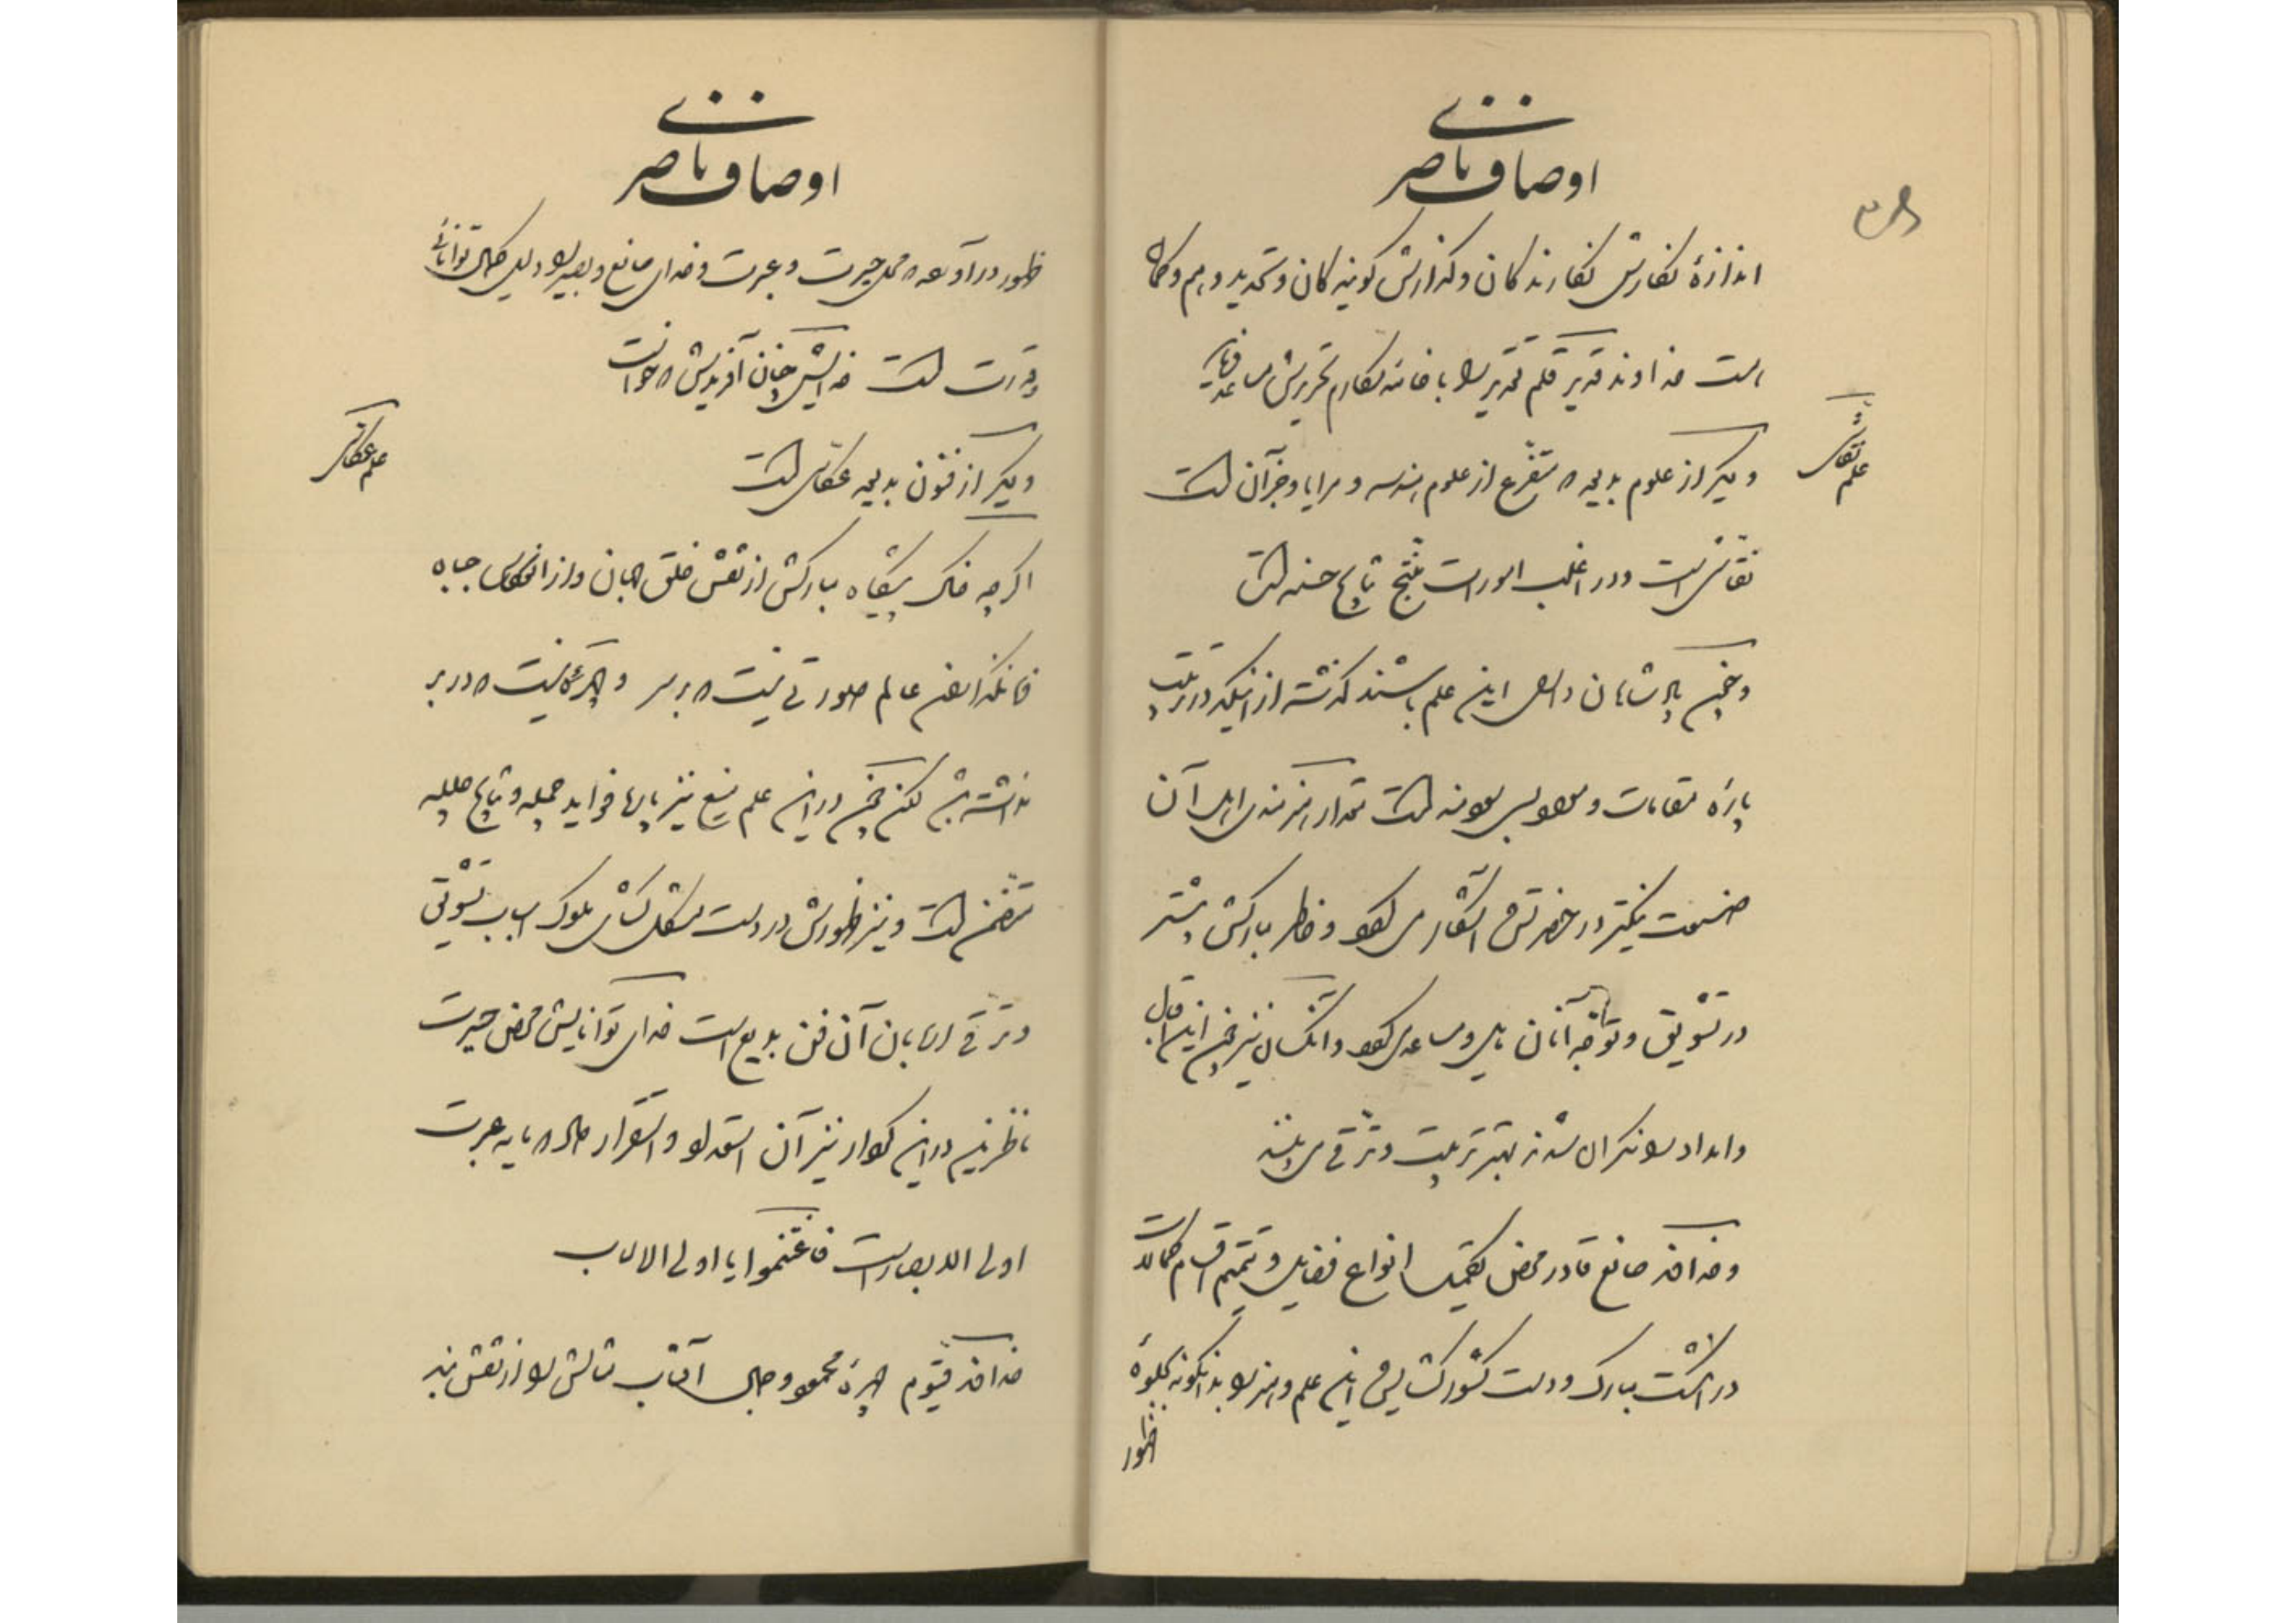 اوصاف ناصری
اندازهٔ نگارش نگارندگان و گذارش گویندگان و تحدید وهم و گمان
است خداوند قدیر قلم تقدیر را با خامه نگارم تحریرش مساعد
علم نقاشی
دیگر از علوم بدیعه که متفرع از علوم هندسه و مرایا و جز آن است
نقاشی است و در اغلب امور است منتج نتایج حسنه است
و چون پادشاهان دارای این علم باشند گذشته از اینکه در ترتیب
پارهٔ مقامات و مقدار هنرمندی اهل آن
صنعت نیکتر در حضرتش آشکار می شود و خاطر مبارکش بیشتر
در تشویق و توجه آنان مایل و مساعد می شود و آنکسان نیز چون این اقبال
و امداد را نگران شدند بهتر تربیت و ترقی می یابند
و خداوند صانع قادر محض تکمیل انواع فضایل و تتمیم اقسام کمالات
در انگشت مبارک و دست کشورگشایش این علم و هنر را بدانگونه بجلوهٔ
ظهور
اوصاف ناصری
ظهور در آورده که محل حیرت و عبرت و خدای صانع و بصیر را دلیل کمال توانائی
و قدرت است خدایش چنان آفریدش که خواست
علم عکاسی
دیگر از فنون بدیعه عکاسی است
اگر چه خاک پیشگاه مبارکش از نقش خلق جهان و از انعکاس جباه
خاقانان عالم صورتی نیست که بر سر و چهرگانیست که در بر
نداشته باشد لکن چون در این علم منیع نیز پارها فواید جمیله و نتایج جلیله
متضمن است و نیز ظهورش در دست مشکل گشای ملوک اسباب تشویق
و ترقی اربابان آن فن بدیع است خدای توانایش محض حیرت
ناظرین در این کار نیز آن استعداد و استقرار داد که مایه عبرت
اولی الابصار است فاغتنموا یا اولی الالباب
خداوند قیوم چهرهٔ محمود و جمال آفتاب مثالش را از نقش بند